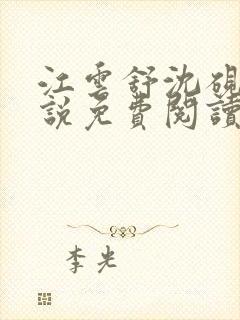 江雲舒沈硯
說免費閱讀
李光